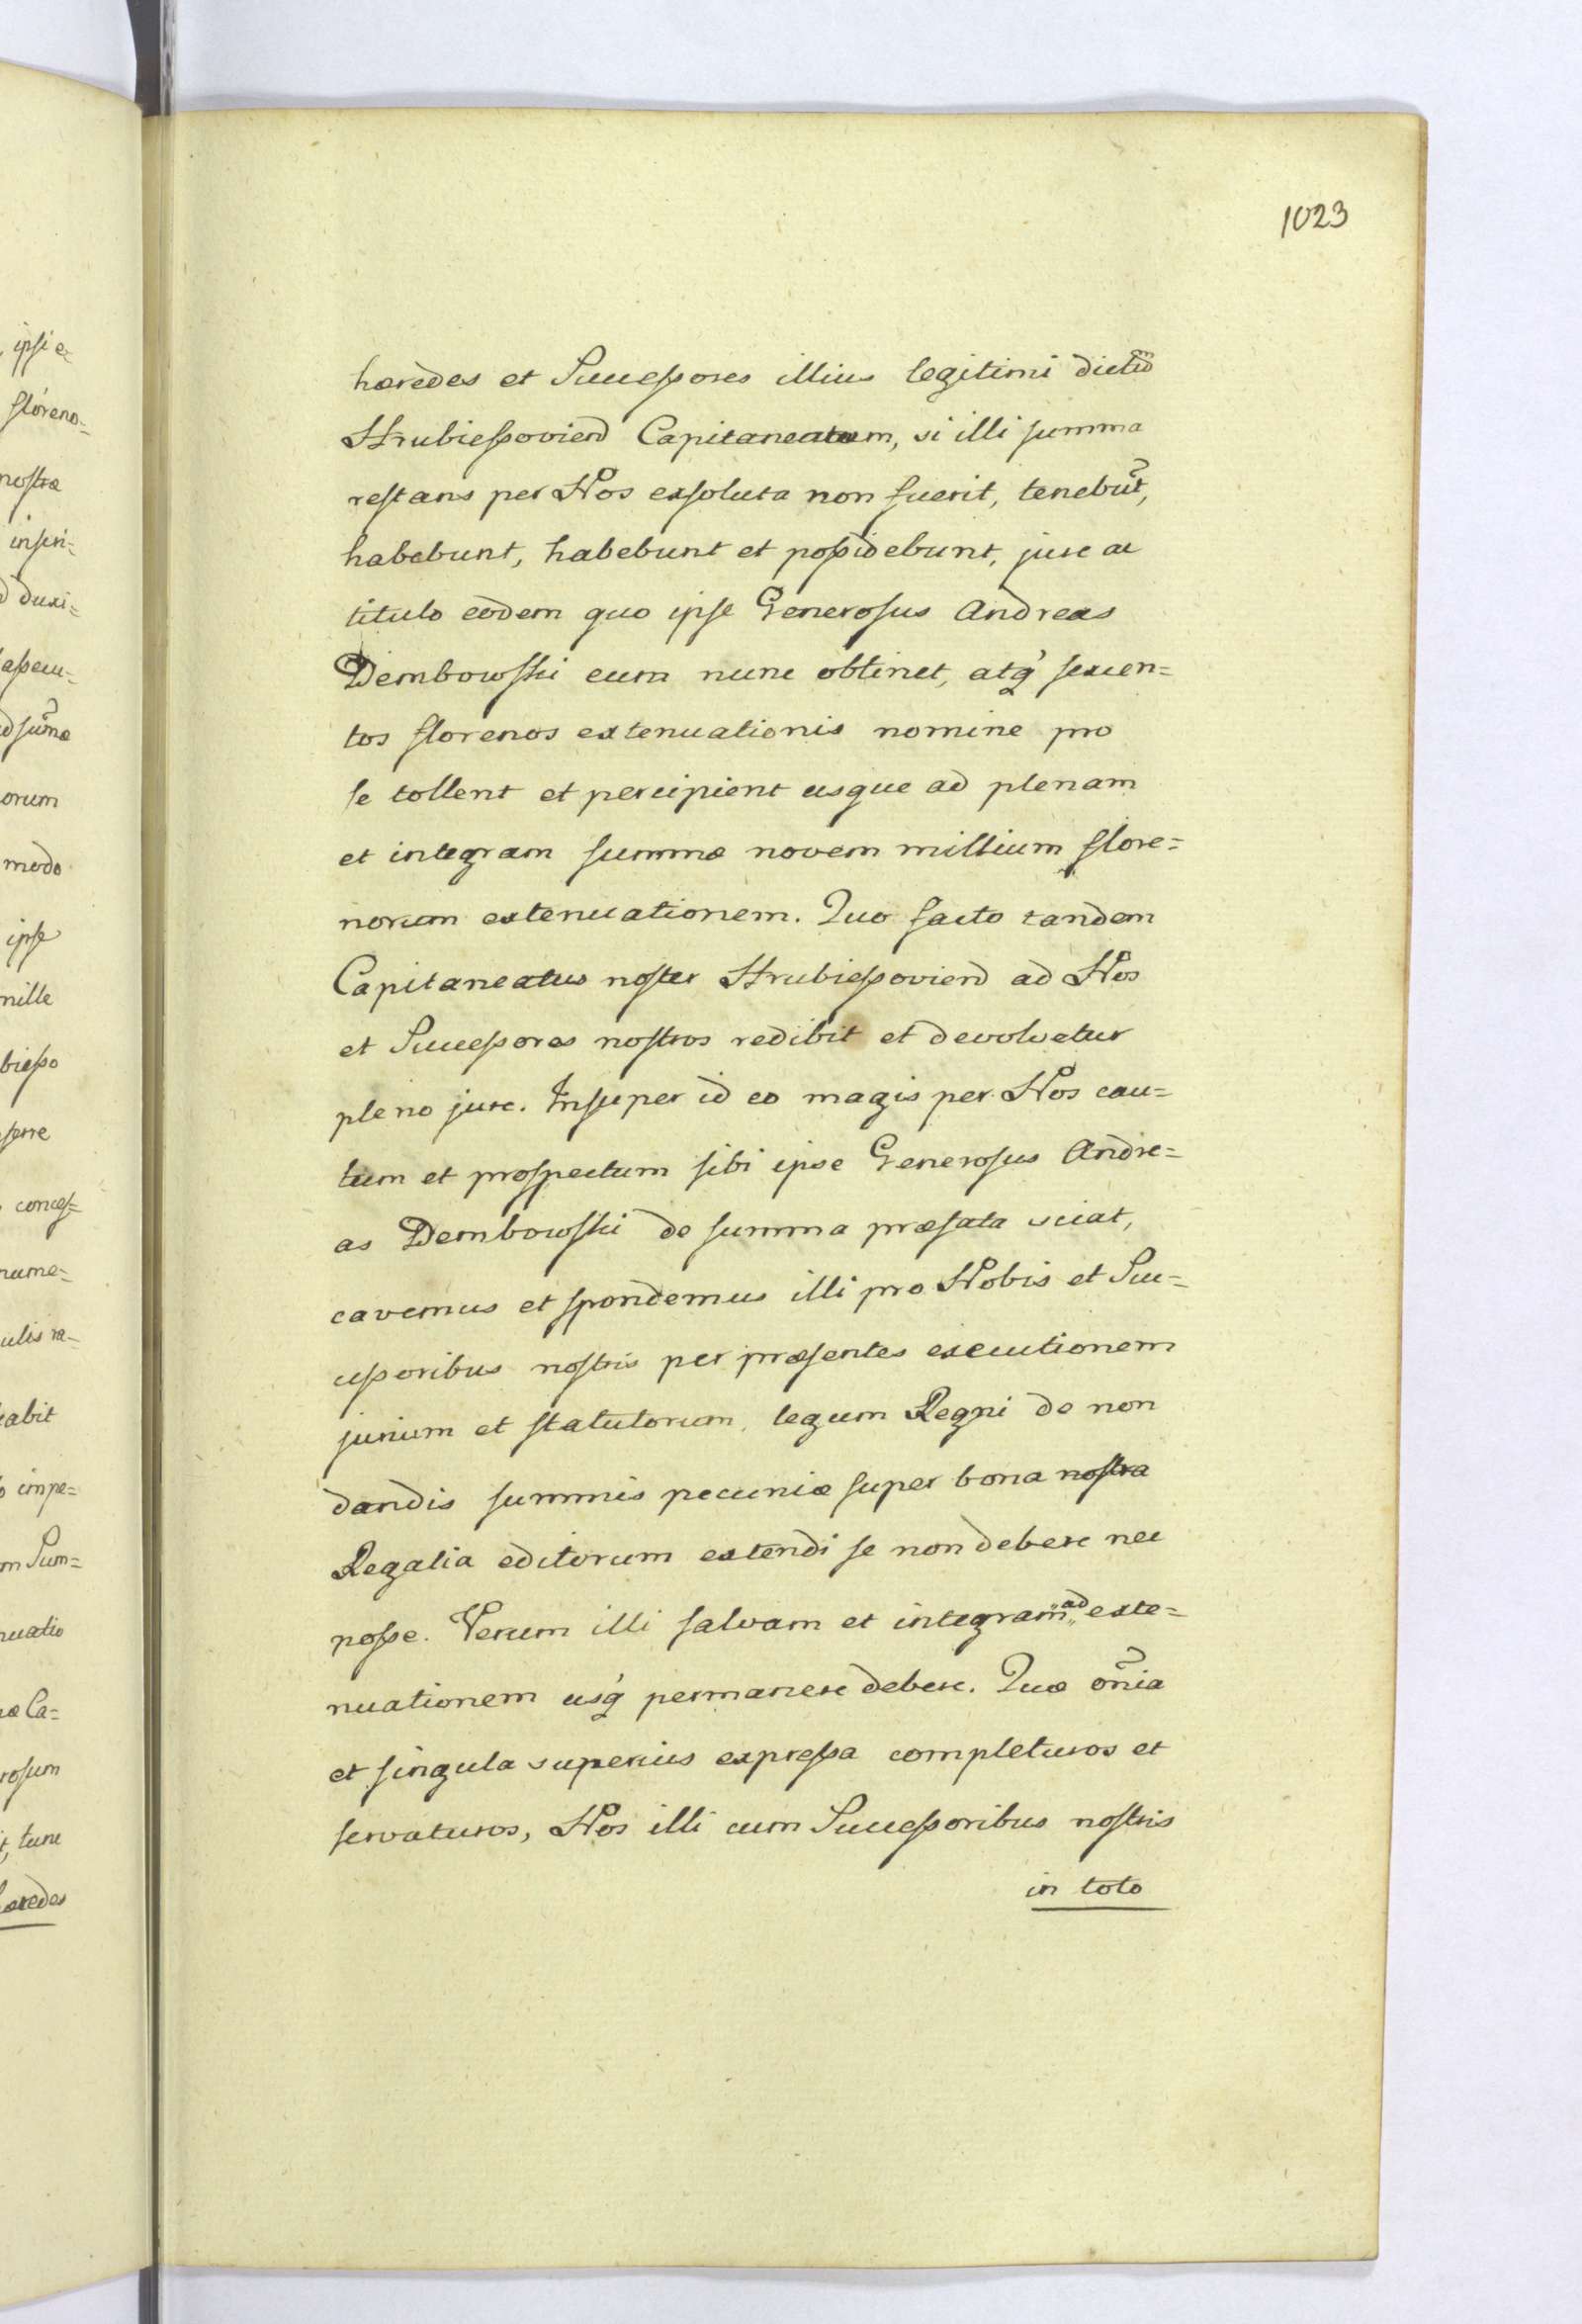 1023
hæredes et Successores illius legitimi dictũ
Hrubiessoviens Capitaneatum, si illi summa
restans per Nos exsoluta non fuerit, tenebũt,
habebunt, habebunt et possidebunt, jure ac
titulo eodem quo ipse Generosus Andreas
Dembowski eum nunc obtinet, atq́ sexcen=
tos florenos extenuationis nomine pro
se tollent et percipient usque ad plenam
et integram summæ novem millium flore=
norum extenuationem. Quo facto tandem
Capitaneatus noster Hrubiessoviens ad Nos
et Successores nostros redibit et devolvetur
pleno jure. Insuper id eo magis per Nos cau=
tum et prospectum sibi ipse Generosus Andre=
as Dembowski de summa præfata sciat,
cavemus et spondemus illi pro Nobis et Suc=
cessoribus nostris per præsentes executionem
jurium et statutorum, legum Regni de non
dandis summis pecuniæ super bona nostra
Regalia editorum extendi se non debere nec
posse. Verum illi salvam et integram ad exte=
nuationem usq́ permanere debere. Quæ om̃ia
et singula superius expressa completuros et
servaturos, Nos illi cum Successoribus nostris
in toto
ipsi e
floreno=
nostræ
inscri=
duxi=
assecu=
sum̃æ
orum
modo
ipse
mille
biesso
serre
conces=
nume=
ulis ra=
abit
impe=
m Sum=
nuatio
æ Ca=
rosum
t, tunc
hæredes